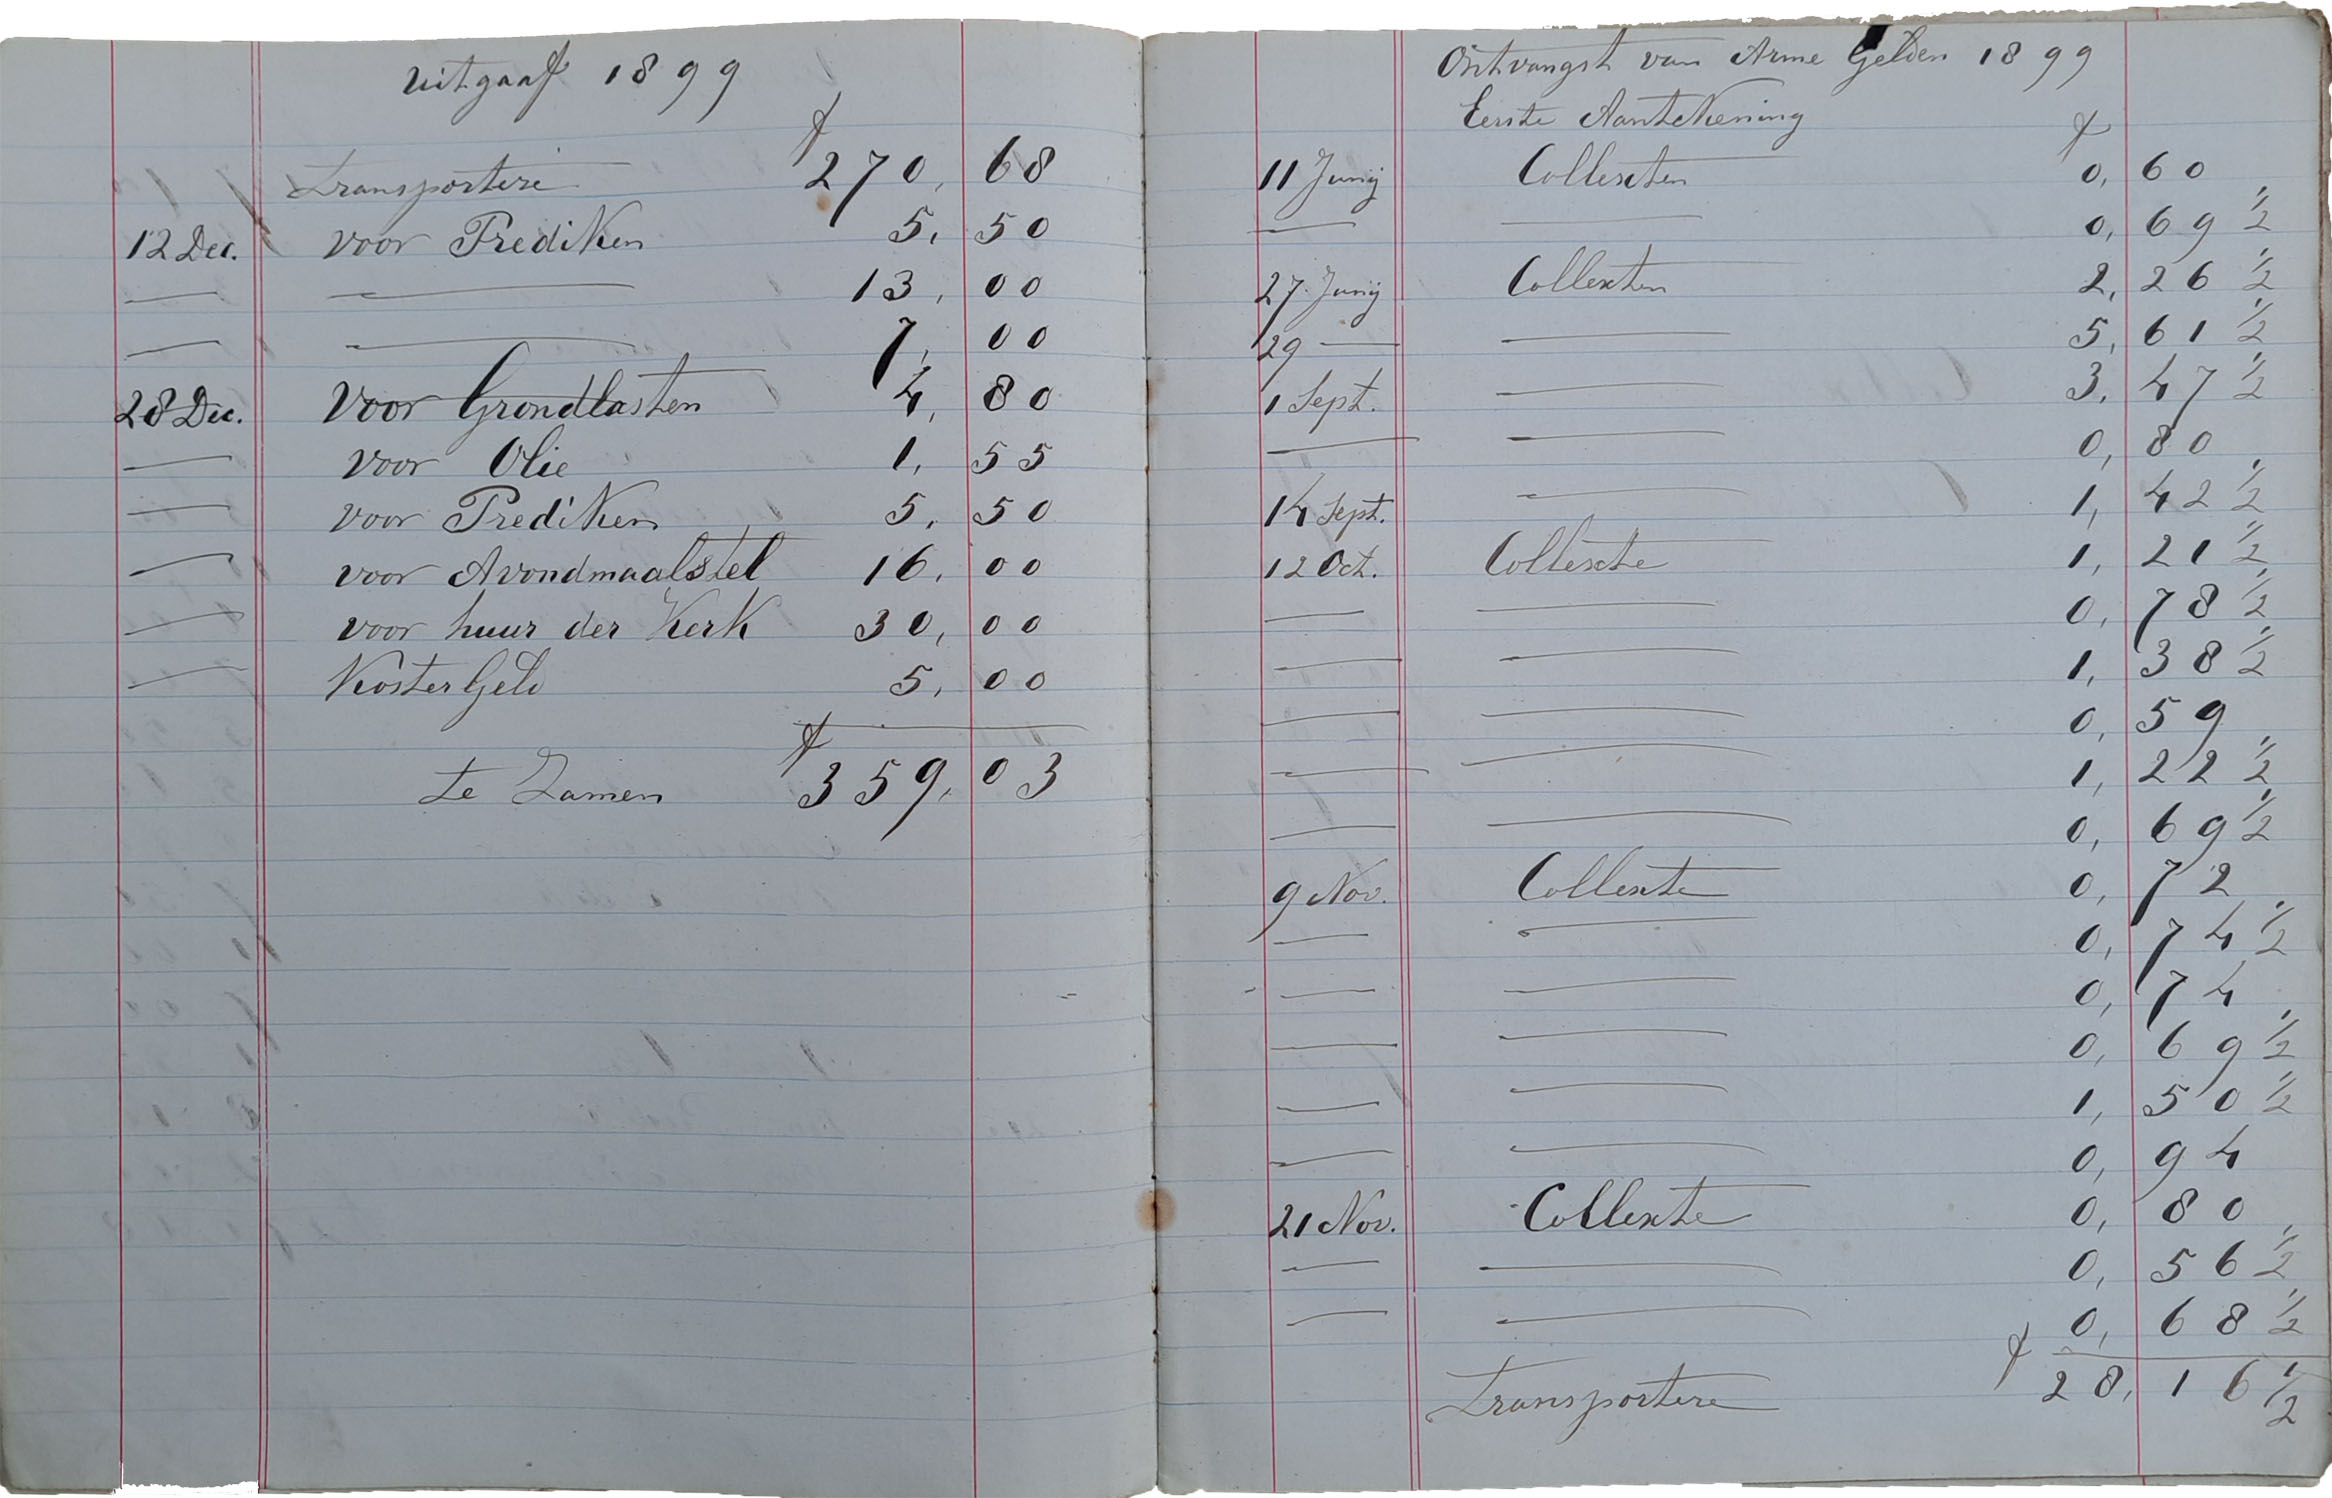 Uitgaaf 1899
Transportere f 270, 68
12 Dec. voor Prediken 5, 50
— — 13, 00
— — 7, 00
28 Dec. Voor Grondlasten 4, 80
— voor Olie 1, 55
— voor Prediken 5, 50
— voor Avondmaalstel 16, 00
— voor huur der Kerk 30, 00
— Koster Geld 5, 00
te Zamen f 359, 03
Ontvangst van Arme Gelden 1899
Eerste Aantekening
f
11 Junij Collexten 0, 60
— — 0, 69 1/2
27 Junij Collexten 2, 26 1/2
29 — — 5, 61 1/2
1 Sept. — 3, 47 1/2
— — 0, 80
14 Sept. — 1, 42 1/2
12 Oct. Collexte 1, 21 1/2
— — 0, 78 1/2
— — 1, 38 1/2
— — 0, 59
— — 1, 22 1/2
— — 0, 69 1/2
9 Nov. Collexte 0, 72
— — 0, 74 1/2
— — 0, 74
— — 0, 69 1/2
— — 1, 50 1/2
— — 0, 94
21 Nov. Collexte 0, 80
— — 0, 56 1/2
— — 0, 68 1/2
Transportere f 28, 16 1/2